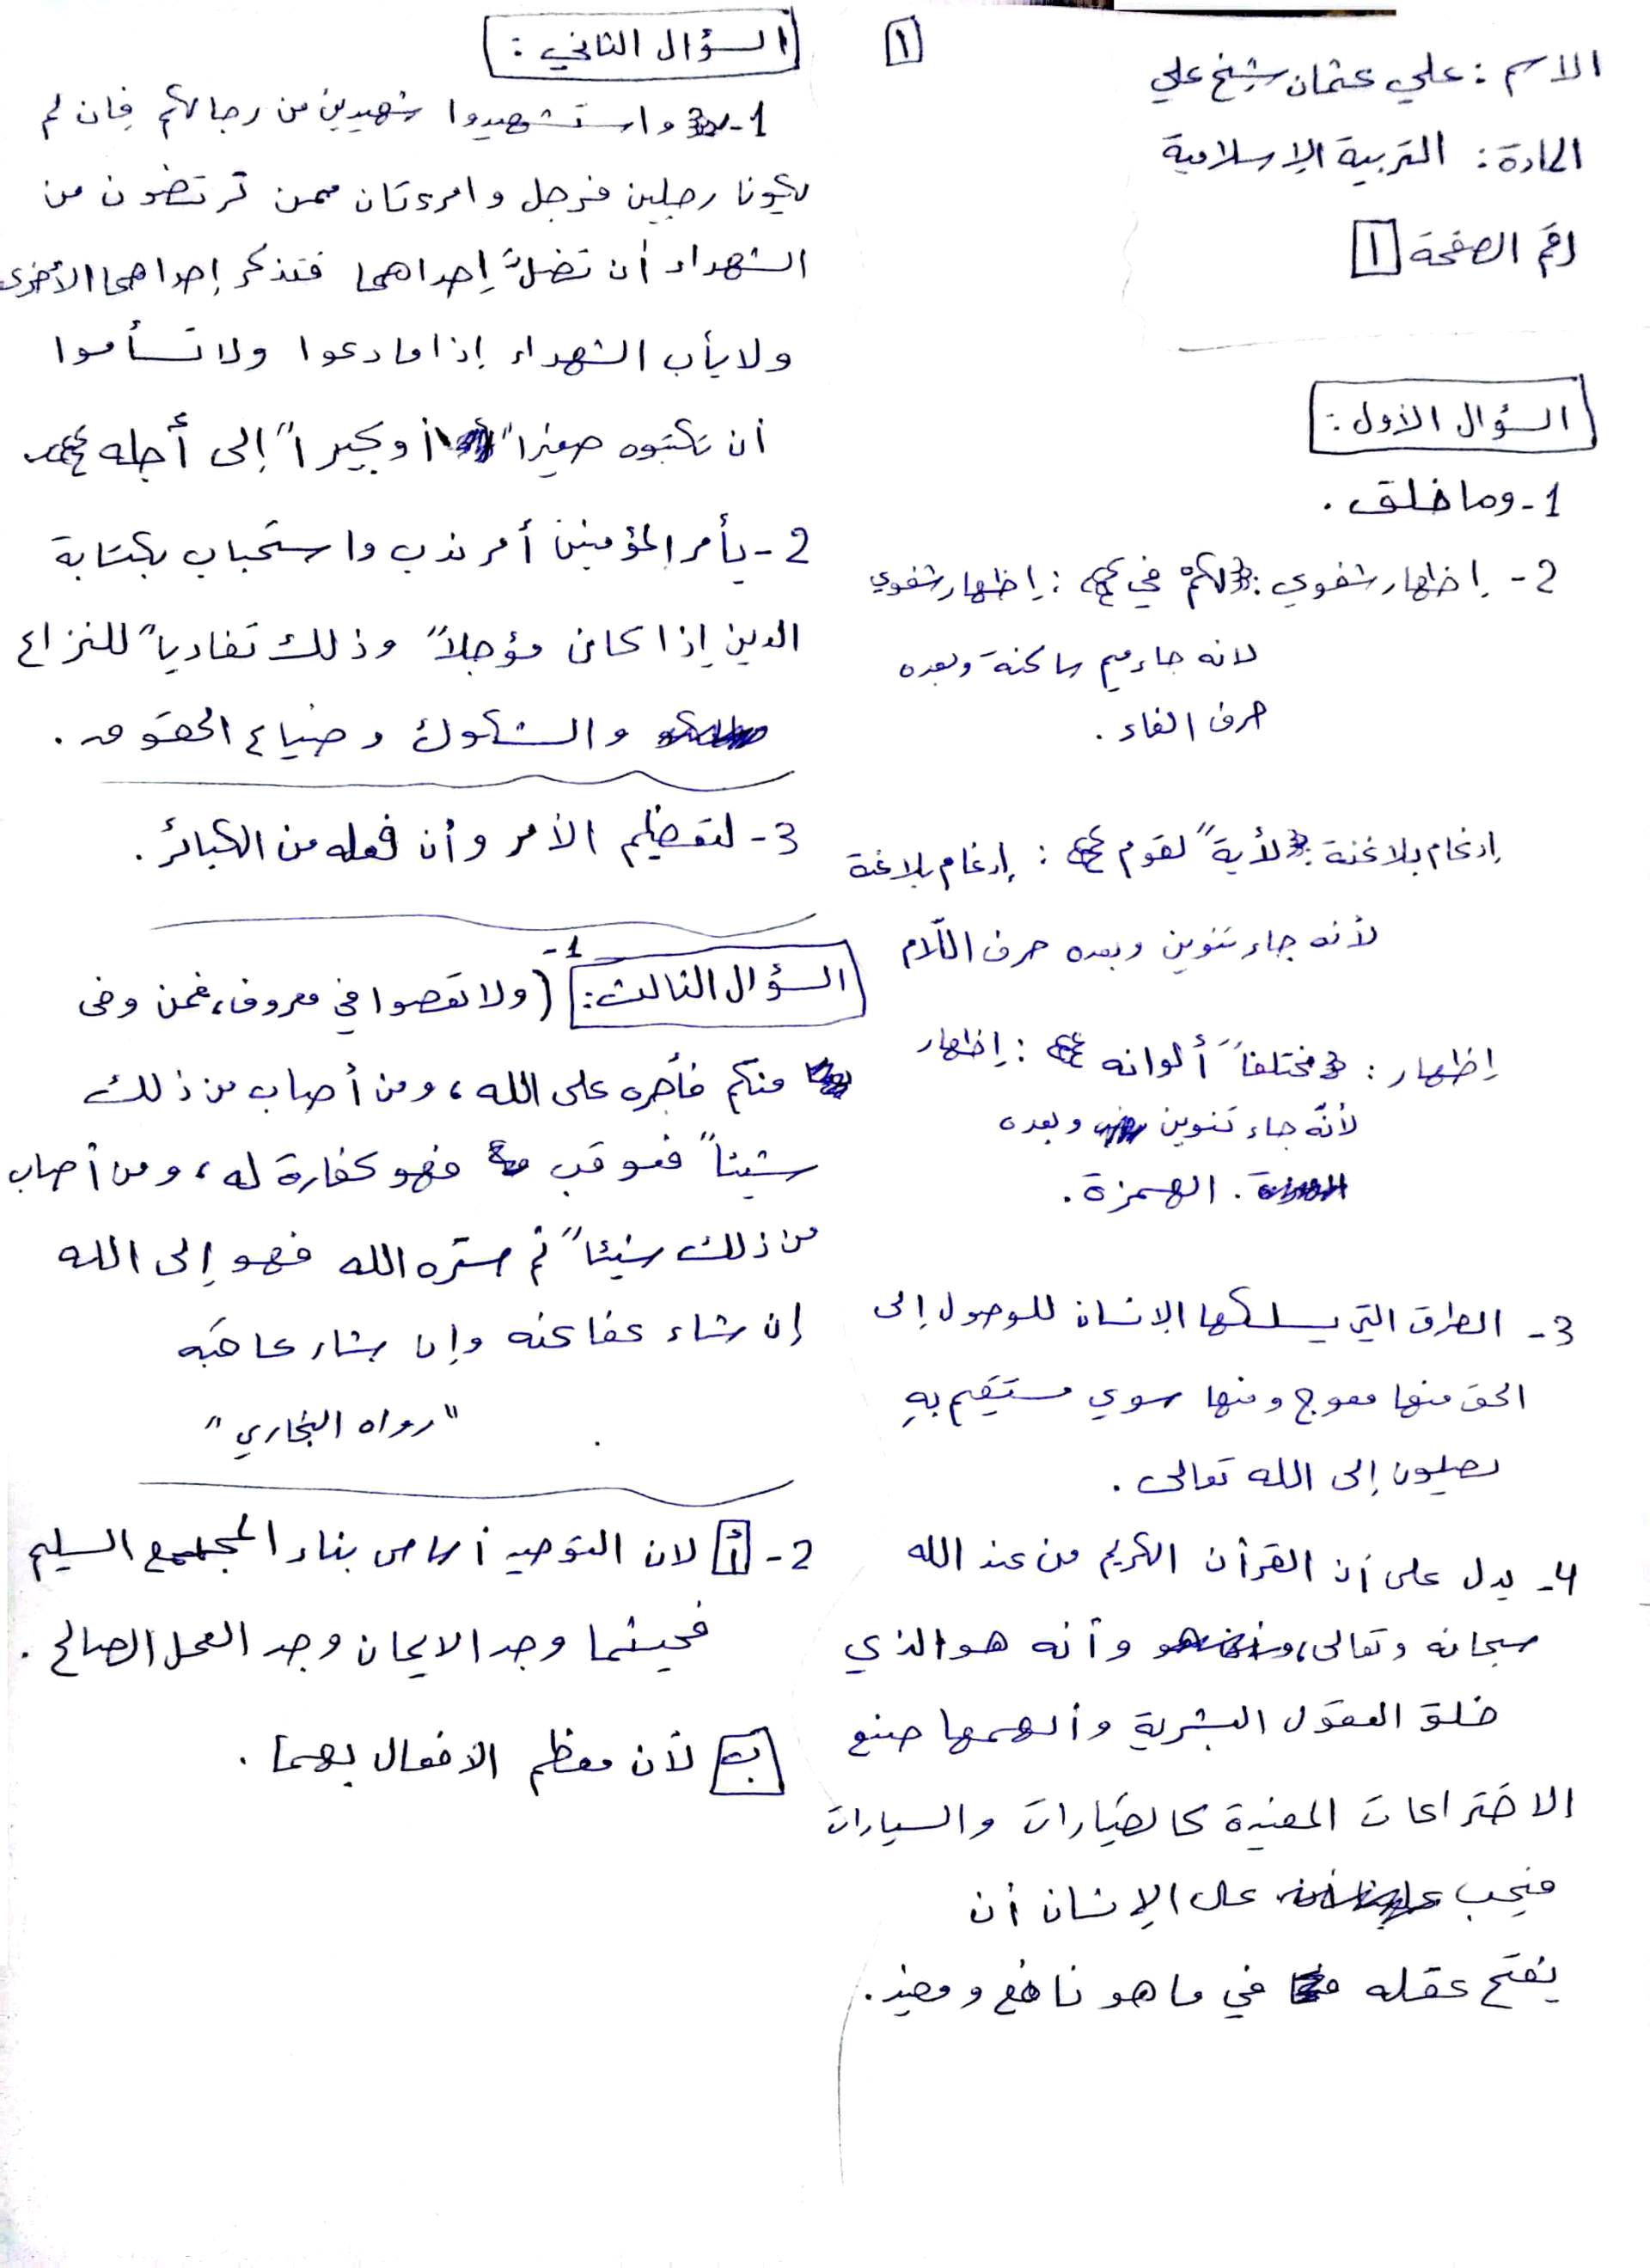 الاسم : علي عثمان شيخ علي
المادة : التربية الإسلامية
رقم الصفحة ١
١
السؤال الأول :
1- وما خلق .
2- إظهار شفوي : ﴿لكمْ في﴾ : إظهار شفوي
لانه جاء ميم ساكنة وبعده
حرف الفاء .
إدغام بلا غنة : ﴿لأيةً لقوم﴾ : إدغام بلا غنة
لأنه جاء تنوين وبعده حرف اللّام
إظهار : ﴿مختلفاً ألوانه﴾ : إظهار
لأنّه جاء تنوين وبعده
الهمزة .
3- الطرق التي يسلكها الإنسان للوصول إلى
الحق منها معوج ومنها سوي مستقيم بهِ
يصلون إلى الله تعالى .
4- يدل على أن القرأن الكريم من عند الله
سبحانه وتعالى، وأنه هو الذي
خلق العقول البشرية وألهمها صنع
الاختراعات المفيدة كالطيارات والسيارات
فيجب على الإنسان أن
يفتح عقله في ما هو نافع ومفيد .
السؤال الثاني :
1- ﴿واستشهدوا شهيدين من رجالكم فإن لم
يكونا رجلين فرجل وامرءتان ممن ترتضون من
الشهداء أن تضلَّ إحداهما فتذكر إحداهما الأخرى
ولا يأب الشهداء إذا ما دعوا ولا تسأموا
أن تكتبوه صغيراً أو كبيراً إلى أجله﴾
2- يأمر المؤمنين أمر ندب واستحباب بكتابة
الدين إذا كان مؤجلاً وذلك تفادياً للنزاع
والشكوك وضياع الحقوق .
3- لتعظيم الأمر وأن فعله من الكبائر .
السؤال الثالث : 1- (ولا تعصوا في معروف، فمن وفى
منكم فأجره على الله، ومن أصاب من ذلك
شيئاً فعوقب فهو كفارة له، ومن أصاب
من ذلك شيئاً ثم ستره الله فهو إلى الله
إن شاء عفا عنه وإن شاء عاقبه
"رواه البخاري"
2- أ لان التوحيد أساس بناء المجتمع السليم
فحيثما وجد الايمان وجد العمل الصالح .
ب لأن معظم الافعال بهما .